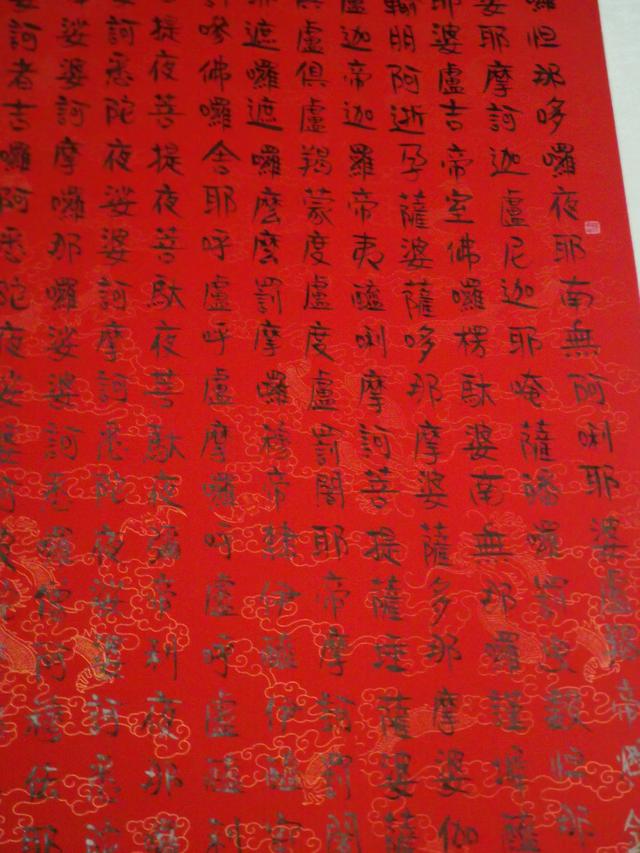 囉怛那哆囉夜耶南無阿唎耶婆盧羯帝
婆耶摩訶迦盧尼迦耶唵薩皤囉罰曳數怛那
耶婆盧吉帝室佛囉楞馱婆南無那囉謹墀薩
輸朋阿逝孕薩婆薩哆那摩婆薩多那摩婆伽
盧迦帝迦羅帝夷醯唎摩訶菩提薩埵薩婆薩
盧俱盧羯蒙度盧度盧罰闍耶帝摩訶罰闍
遮囉遮囉麼麼罰摩囉穆帝隸伊醯伊醯室
嘇佛囉舍耶呼盧呼盧摩囉呼盧呼盧醯利
提夜菩提夜菩馱夜菩馱夜彌帝利夜那囉
婆訶悉陀夜娑婆訶摩訶悉陀夜娑婆訶悉陀
娑婆訶摩囉那囉娑婆訶悉囉僧阿穆佉耶
訶者吉囉阿悉陀夜娑婆訶